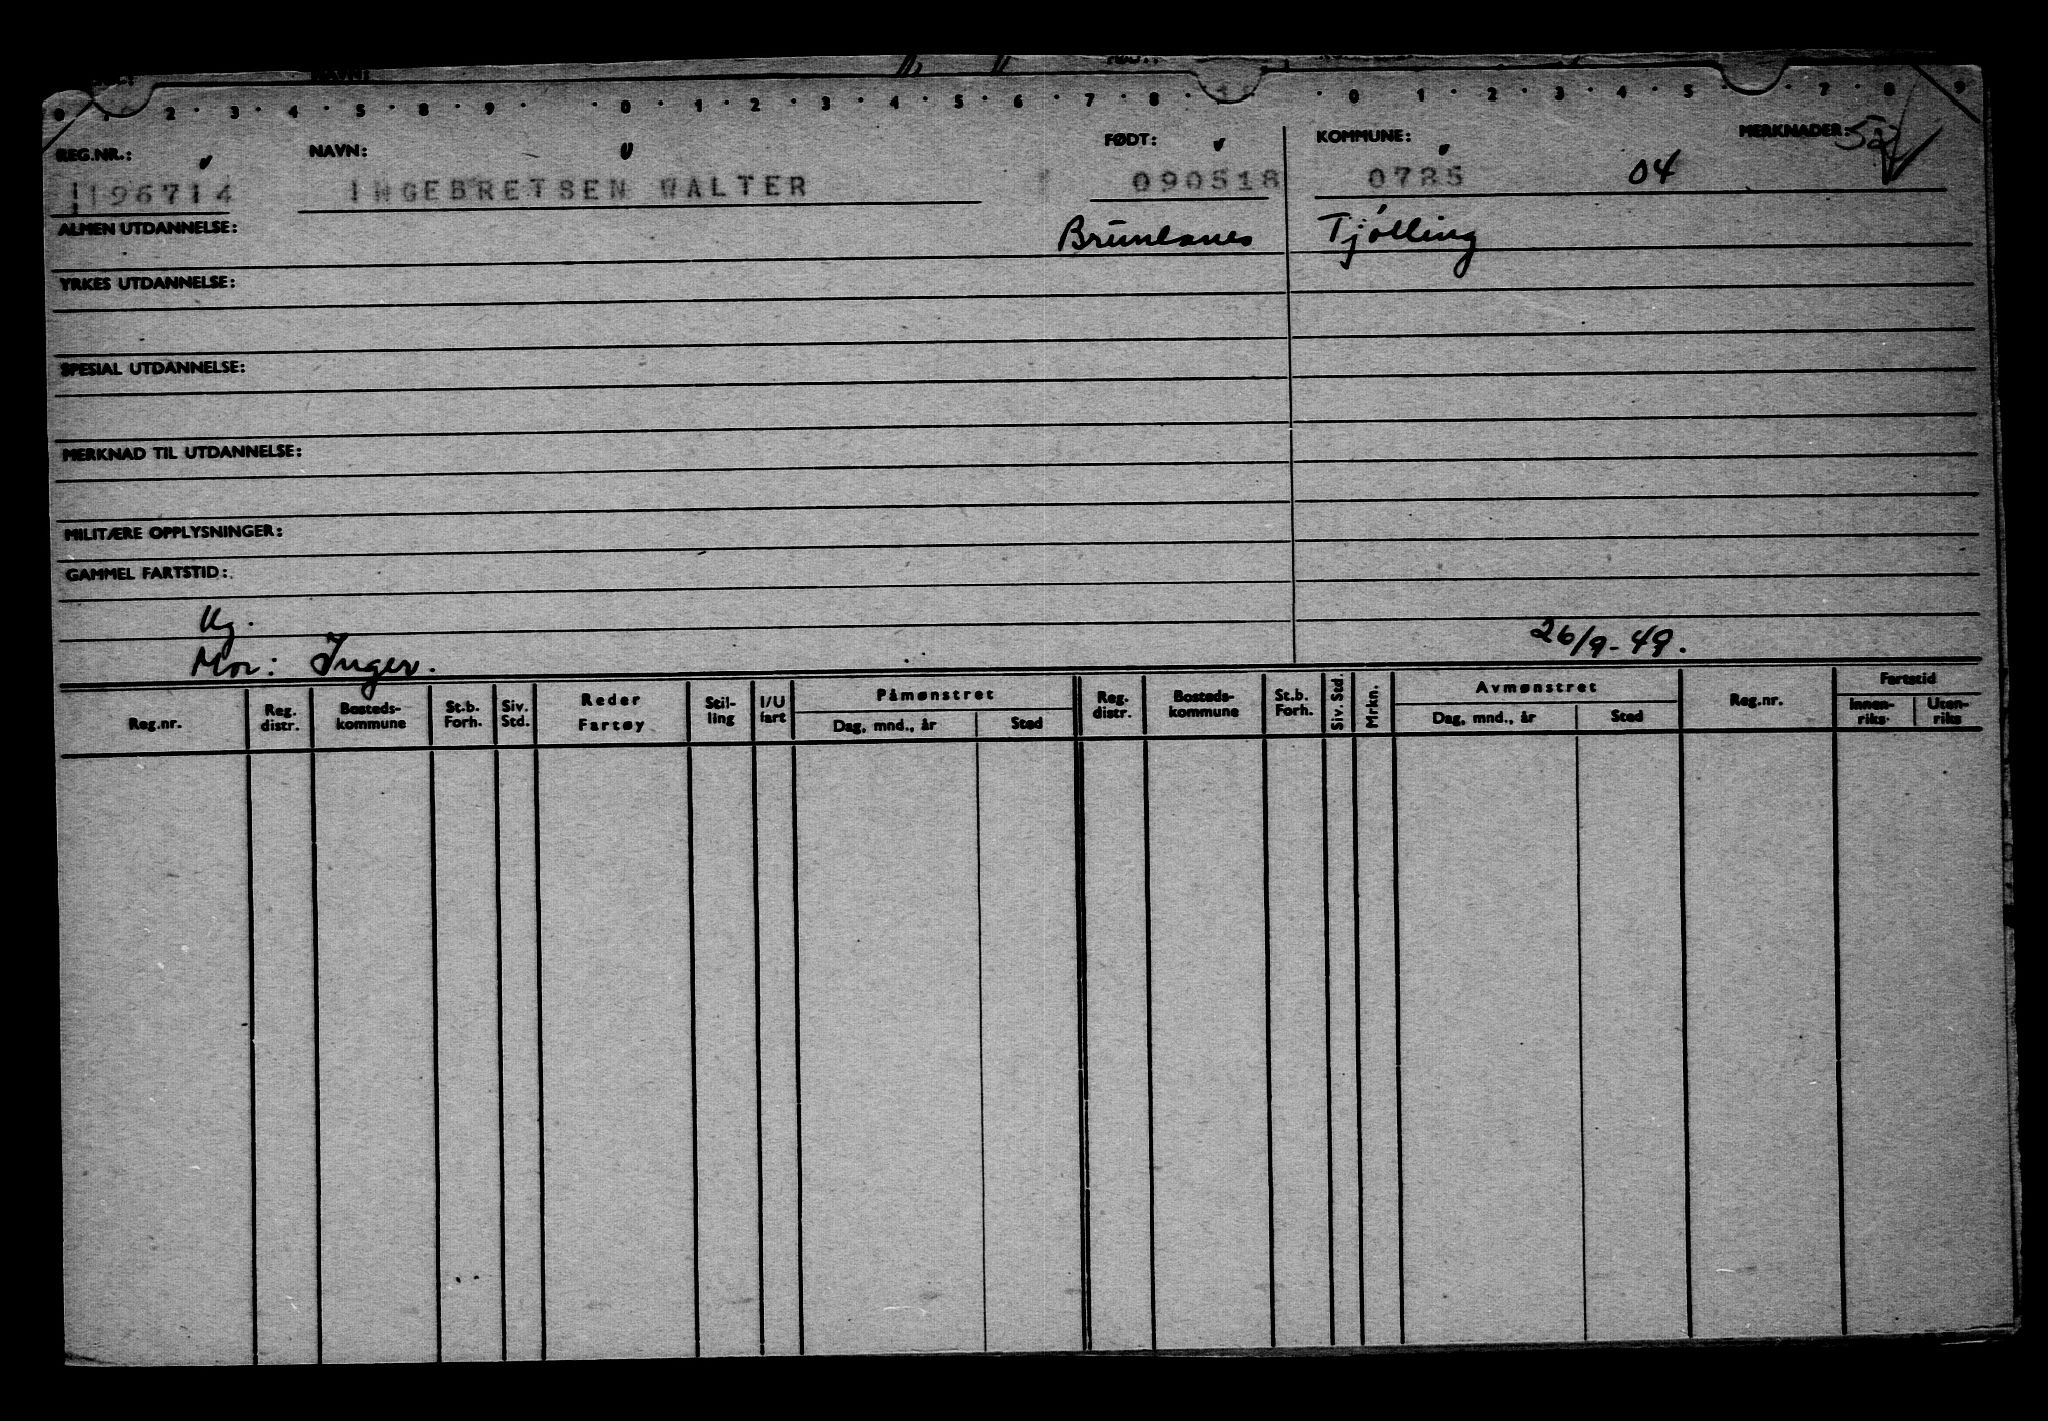 0 1 2 3 4 5 8 9 0 1 2 3 4 5 6 7 8 0 1 2 3 4 5 7 8 9
REG.NR.: NAVN: FØDT: KOMMUNE: MERKNADER: 52
1196714 INGEBRETSEN WALTER 090518 0725 04
ALMEN UTDANNELSE: Brunlanes Tjølling
YRKES UTDANNELSE:
SPESIAL UTDANNELSE:
MERKNAD TIL UTDANNELSE:
MILITÆRE OPPLYSNINGER:
GAMMEL FARTSTID:
Ug.
Mor: Inger. 26/9-49.
Reg.nr. Reg. distr. Bosteds-kommune St.b. Forh. Siv. Std. Reder Fartøy Stil-ling I/U fart Påmønstret Dag, mnd., år Sted Reg. distr. Bosteds-kommune St.b. Forh. Siv. Std. Mrkn. Avmønstret Dag, mnd., år Sted Reg.nr. Fartstid Innen-riks Uten-riks